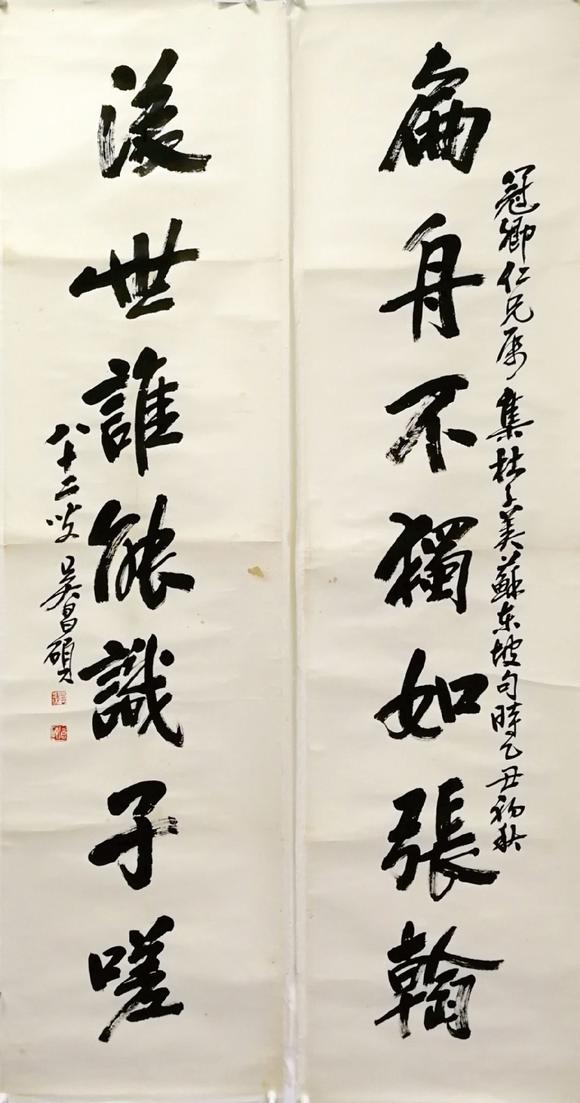 扁舟不獨如張翰
冠卿仁兄属 集杜子美蘇東坡句時乙丑初秋
後世誰能識子嗟
八十二叟 吳昌碩